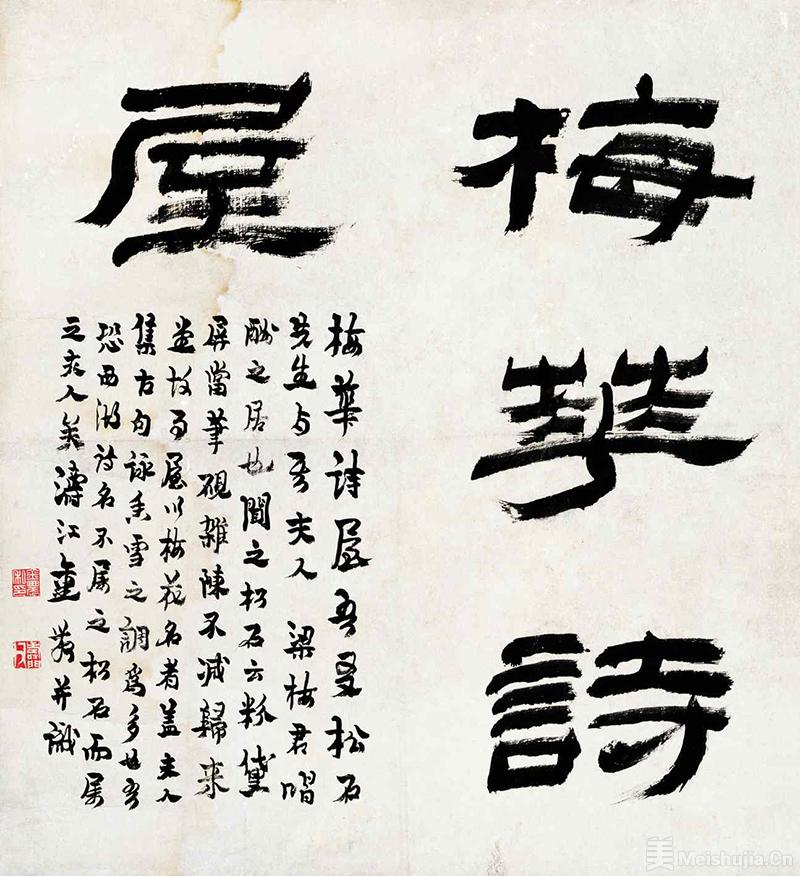 梅華詩
屋
梅華詩屋吾友松石
先生与夫人梁梅君唱
酬之居也聞之松石云粉黛
屏當筆硯雜陳不減歸來
堂故事屋以梅花名者蓋夫人
集古句詠香雪之調為多也吾
恐西湖詩名不屬之松石而屬
之夫人矣濤江并識
美 Meishujia.Cn